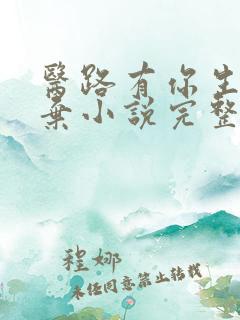 醫路有你生
棄小說完整
程娜
未任同意禁止转载